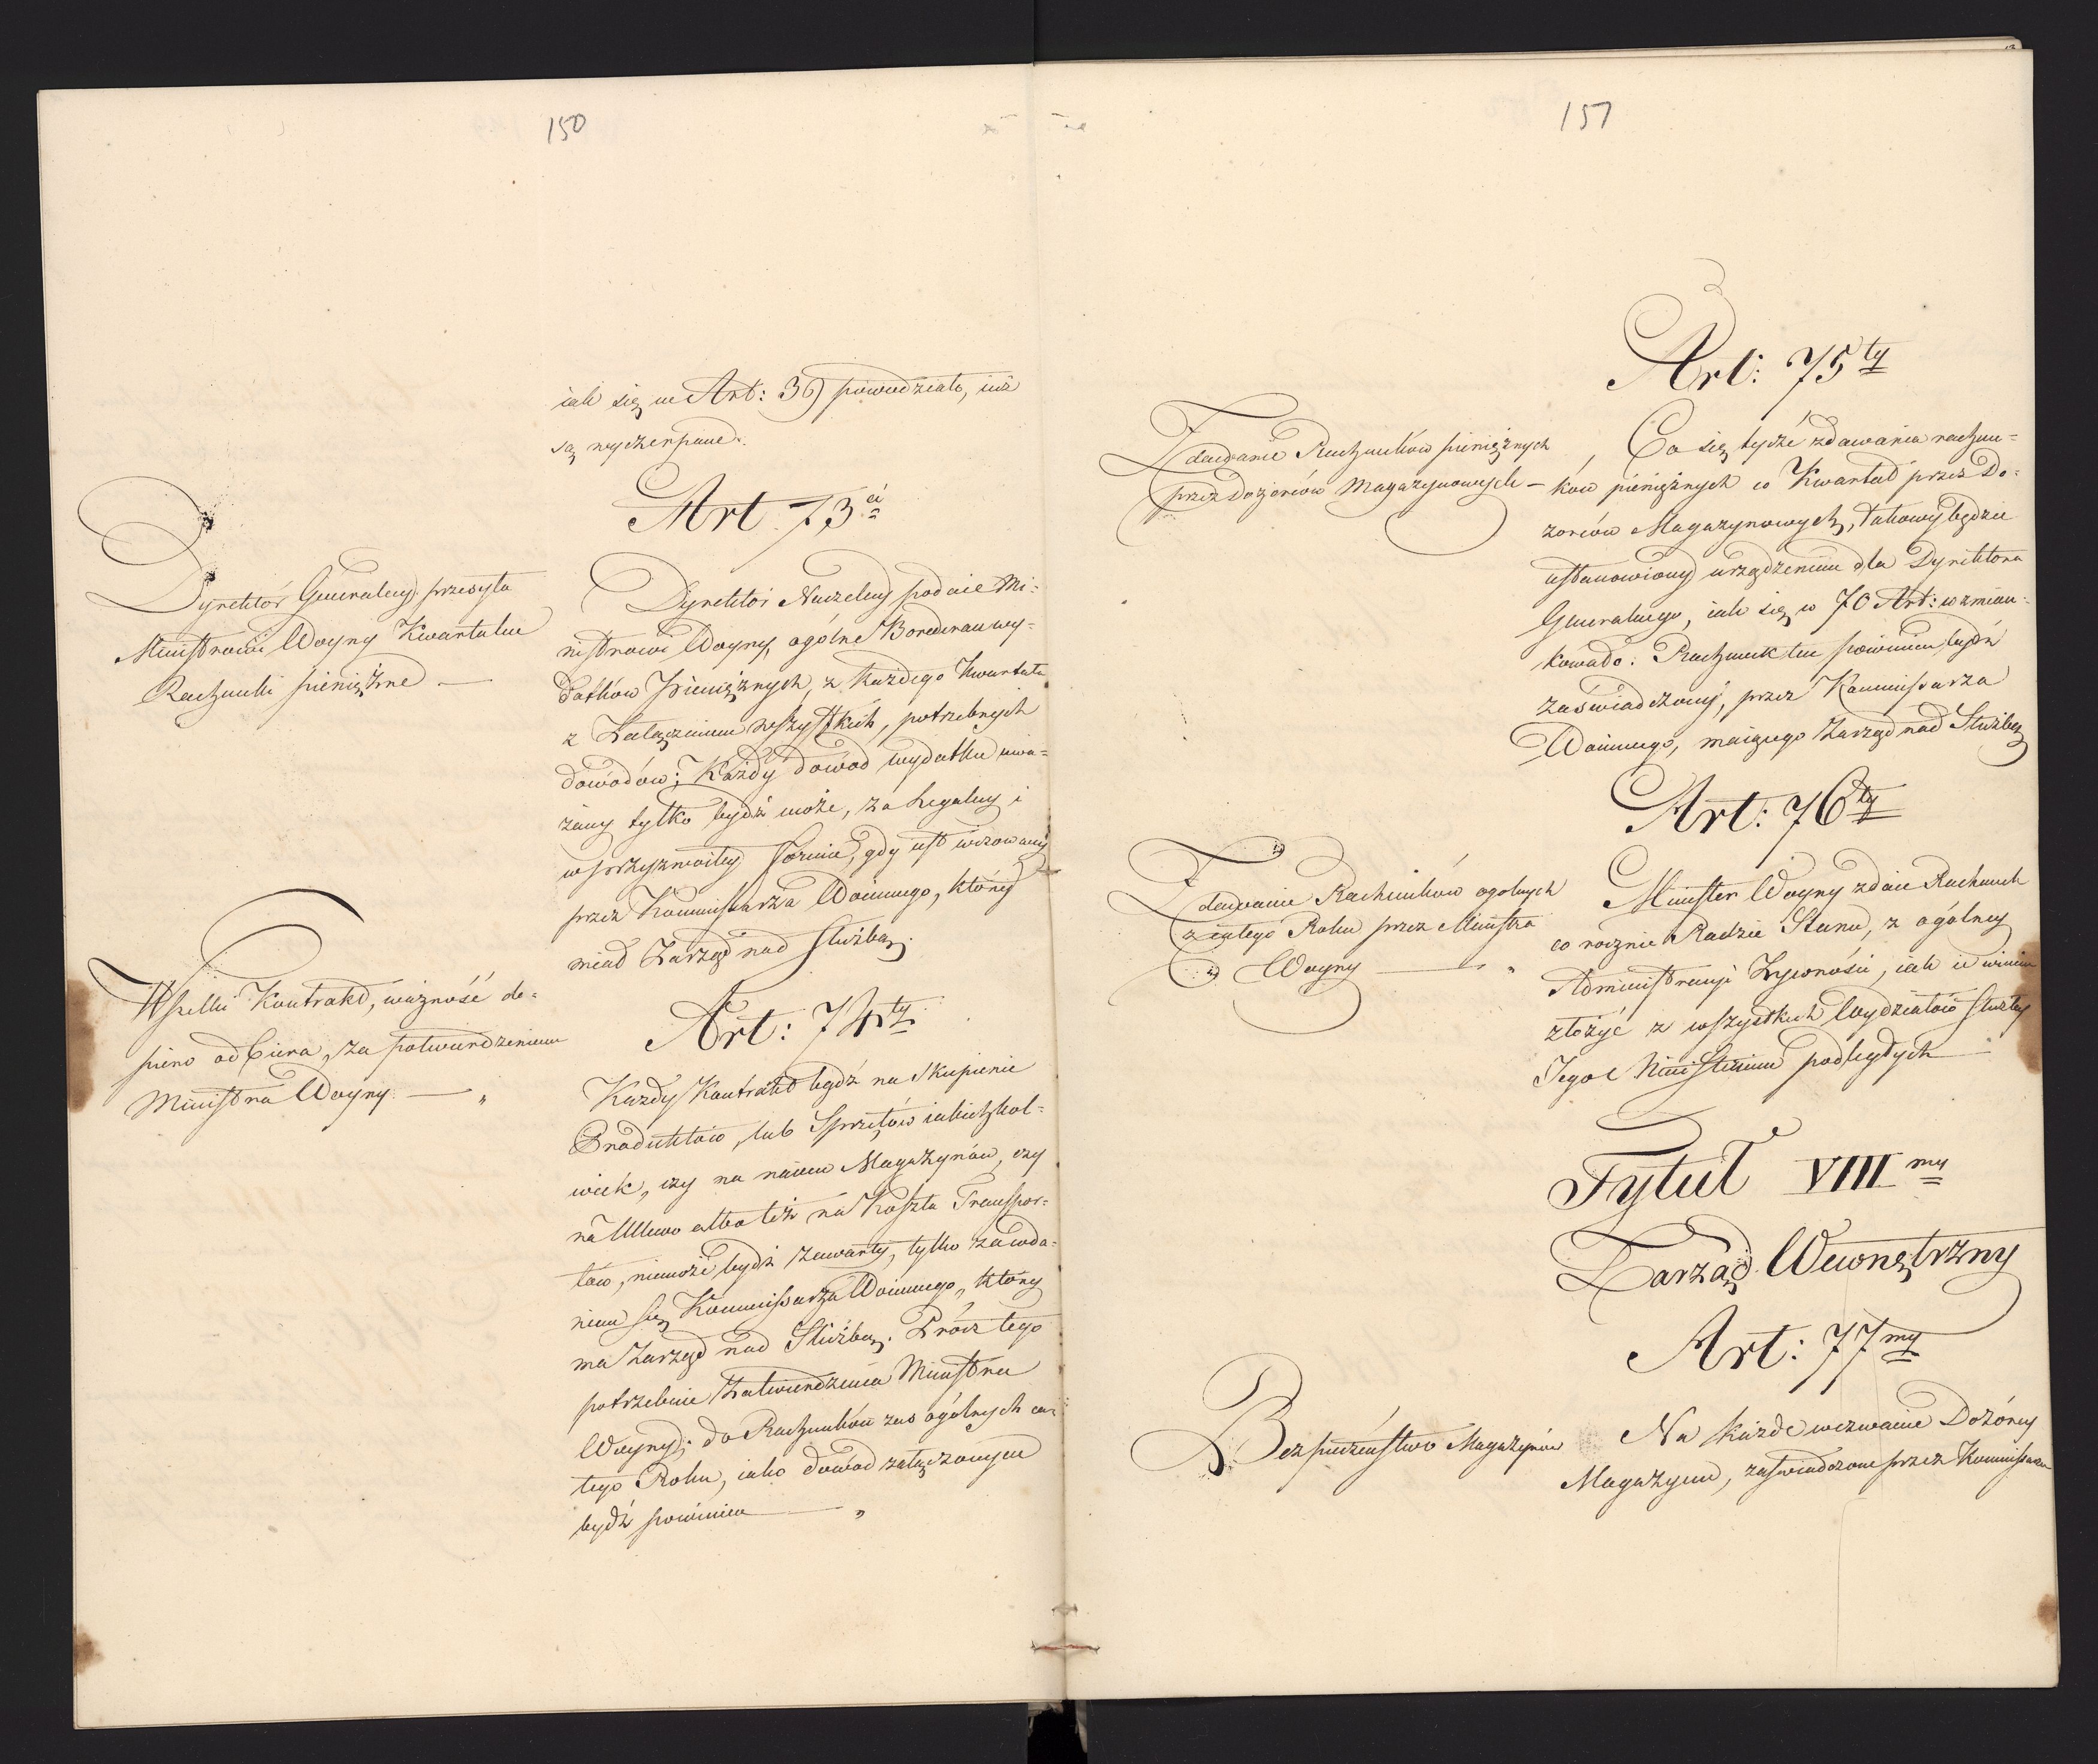 150
iak się w Art: 36) powiedziało, iuż
są wyczerpane.
Art. 73ci
Dyrektór Generalny przesyła
Ministrowi Woyny Kwartalne
Rachunki pieniężne —
Dyrektor Naczelny podaie Mi-
nistrowi Woyny, ogólne Bordereau wy-
datków Pieniężnych, z każdego Kwartału
z Załączeniem wszystkich, potrzebnych
dowodów; Każdy dowód wydatku uwa-
żany tylko bydź może, za Legalny i
w przyzwoitey formie, gdy iest wizowany
przez Kommissarza Woiennego, który
miał Zarząd nad Służbą.
Art: 74ty
Wszelki Kontrakt, ważność do-
piero odbiera, za potwierdzeniem
Ministra Woyny — „
Każdy Kontrakt bądź na Skupienie
Produktów, lub Sprzętów iakichkol-
wiek, czy na naiem Magazynów, czy
na Mlewo albo też na Koszta Transpor-
tów, niemoże bydź zawarty, tylko za wda-
niem się Kommissarza Woiennego, który
ma Zarząd nad Służbą. Prócz tego
potrzebnie Zatwierdzenia Ministra
Woyny; do Rachunków zaś ogólnych ca-
łego Roku, iako dowód załączonym
bydź powinien — „
151
Art: 75ty
Zdawanie Rachunków pieniężnych
przez Dozorców Magazynowych —
Co się tycze zdawania rachun-
ków pieniężnych co Kwartał przez Do-
zorców Magazynowych, takowy będzie
ustanowiony urządzeniem dla Dyrektora
Generalnego, iak się w 70 Art: wzmian-
kowało. Rachunek ten powinien bydź
zaświadczony, przez Kommissarza
Woiennego, maiącego Zarząd nad Służbą
Art: 76ty
Zdawanie Rachunków ogolnych
z całego Roku przez Ministra
Woyny — „
Minister Woyny zdaie Rachunek
co rocznie Radzie Stanu, z ogólney
Administracyi Żywności, iak ie winien
złożyć z wszystkich Wydziałów Służby
Jego Ministerium podległych —
Tytuł VIIImy
Zarząd Wewnętrzny
Art: 77my
Bezpieczeństwo Magazynów
Na każde wezwanie Dozórcy
Magazynu, zaświadczone przez Kommissarza